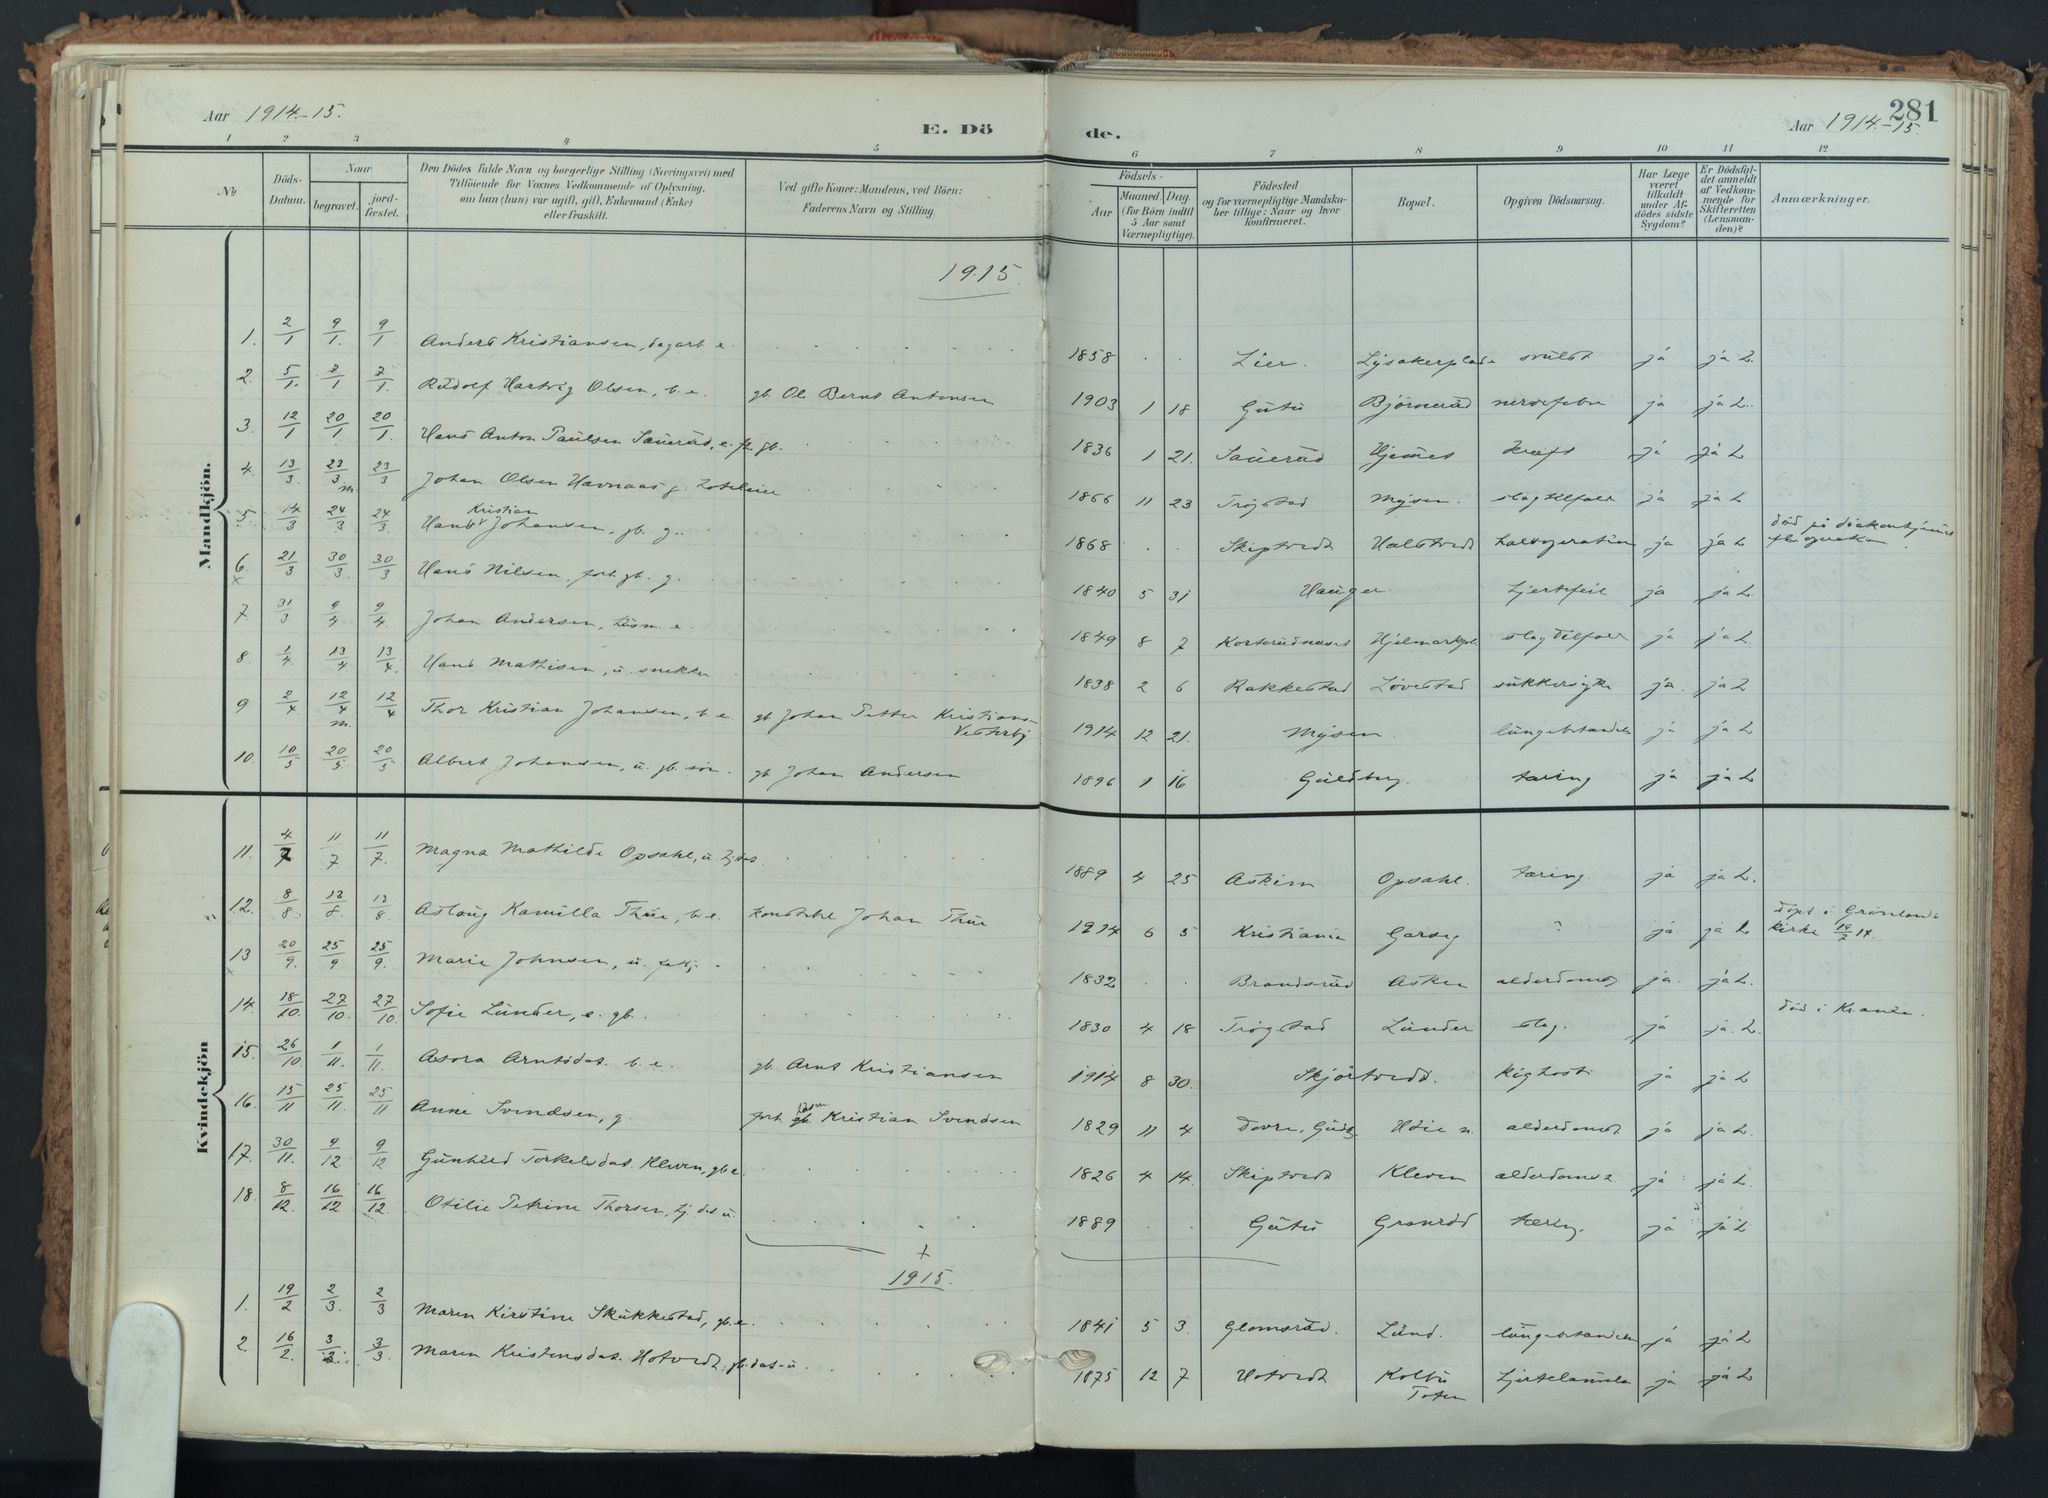 Aar 1914-15.
E. Dö
de.
Aar 1914-15
281
1 2 3 4 5 6 7 8 9 10 11 12
No
Döds-Datum.
Naar
begravet.
jord-fæstet.
Den Dödes fulde Navn og borgerlige Stilling (Næringsvei) med
Tilföiende for Voxnes Vedkommende af Oplysning,
om han (hun) var ugift, gift, Enkemand (Enke)
eller fraskilt.
Ved gifte Koner: Mandens, ved Börn:
Faderens Navn og Stilling.
Födsels-
Aar
Maaned. Dag.
(for Börn indtil
5 Aar samt
Værnepligtige).
Födested
og for værnepligtige Mandska-
ber tillige: Naar og hvor
konfirmeret.
Bopæl.
Opgiven Dödsaarsag.
Har Læge
været
tilkaldt
under Af-
dödes sidste
Sygdom?
Er Dödsfal-
det anmeldt
af Vedkom-
mende for
Skifteretten
(Lensman-
den)?
Anmærkninger.
Mandkjön.
1915
1. 2/1 9/1. 9/1 Anders Kristiansen, dagarb. e. 1858 Lier. Lysakerplads svulst ja ja L.
2. 5/1. 7/1 7/1. Rudolf Hartvig Olsen, b. e. gb. Ole Bernt Antonsen 1903 1 18 Gutu Björnerud nervefeber ja ja L.
3. 12/1 20/1 20/1 Hans Anton Paulsen Sauerud, e. gb. 1836 1 21. Sauerud kræft ja ja L
4. 13/3. 23/3 m. 23/3 Johan Olsen Havnaas g. hoteleier 1866 11 23 Trögstad Mysen. slagtilfæld ja ja L
5. 14/3 24/3 24/3. Hans Kristian Johansen, gb. g. 1868 Skiptvedt Halstvedt halsoperation ja ja L död på diakonhjemmet
6 x 21/3 30/3. 30/3 Hans Nilsen, forh. gb. g. 1840 5 31 Hauger hjertefeil ja ja L.
7 31/3 9/4 9/4. Johan Andersen, husm. e. 1849 8 7 Korterudnæset slagtilfæld ja ja L
8. 1/4. 13/4 13/4. Hans Mathisen, u. snekker 1838 2 6 Rakkestad Lövestad sukkersyke ja. ja L
9 2/4 12/4 m. 12/4 Thor Kristian Johansen, b. e. gb Johan Petter Kristians-
Vesterby 1914 12 21. Mysen. lungebetændelse ja ja L
10. 10/5 20/5 20/5 Albert Johansen, u. gb. sön. gb Johan Andersen 1896 1 16 Guldberg. tæring ja ja L
Kvindekjön
11. 4/7 11/7 11/7. Magna Mathilde Opsahl, u. tj. dat. 1889 4 25 Askim Opsahl. tæring. ja ja L.
12. 8/8 13/8. 13/8. Aslaug Kamilla Thue, b. e. Johan Thue 1914 6 5 Kristiania " ja. ja L döpt i Grönlands
kirke 19/7 14.
13 x 20/9. 25/9 25/9. Marie Johnsen, u. 1832 Brandsrud Asken alderdomst. ja. ja L.
14. 18/10. 27/10. 27/10 Sofie Lunder, e. gb. 1830 4 18 Trögstad Lunder slag. ja ja. L. död i
15. 26/10. 1/11. 1/11. Asora Arntsdat. b. e. gb. Arnt Kristiansen 1914 8 30. Skjörtvedt. kighoste ja ja L
16. 15/11 25/11. 25/11 Anne Svendsen, g. forh. Kristian Svendsen 1829 11 4 Dovre, Gudb. alderdomst. ja ja L.
17. 30/11. 9/12 9/12 Gunhild Torkelsdat. Kleven, gb. e. 1826 4 14. Skiptvedt Kleven alderdomst ja ja L.
18. 8/12. 16/12 16/12 Otilie Petrine Thorsen, tj. dat u. 1889 Gutu Granröd tæring ja ja L
1915.
1. 19/2 2/3. 2/3 Maren Kirstine Skukkestad, gb. e. 1841 5 3. Glomsrud. Lund. lungebetændelse ja ja L
2. 16/2. 3/3. 3/3 Maren Kristensdat. Hotvedt, gb. dat. u. 1875 12 7 Hotvedt Kolbu
Toten ja ja L